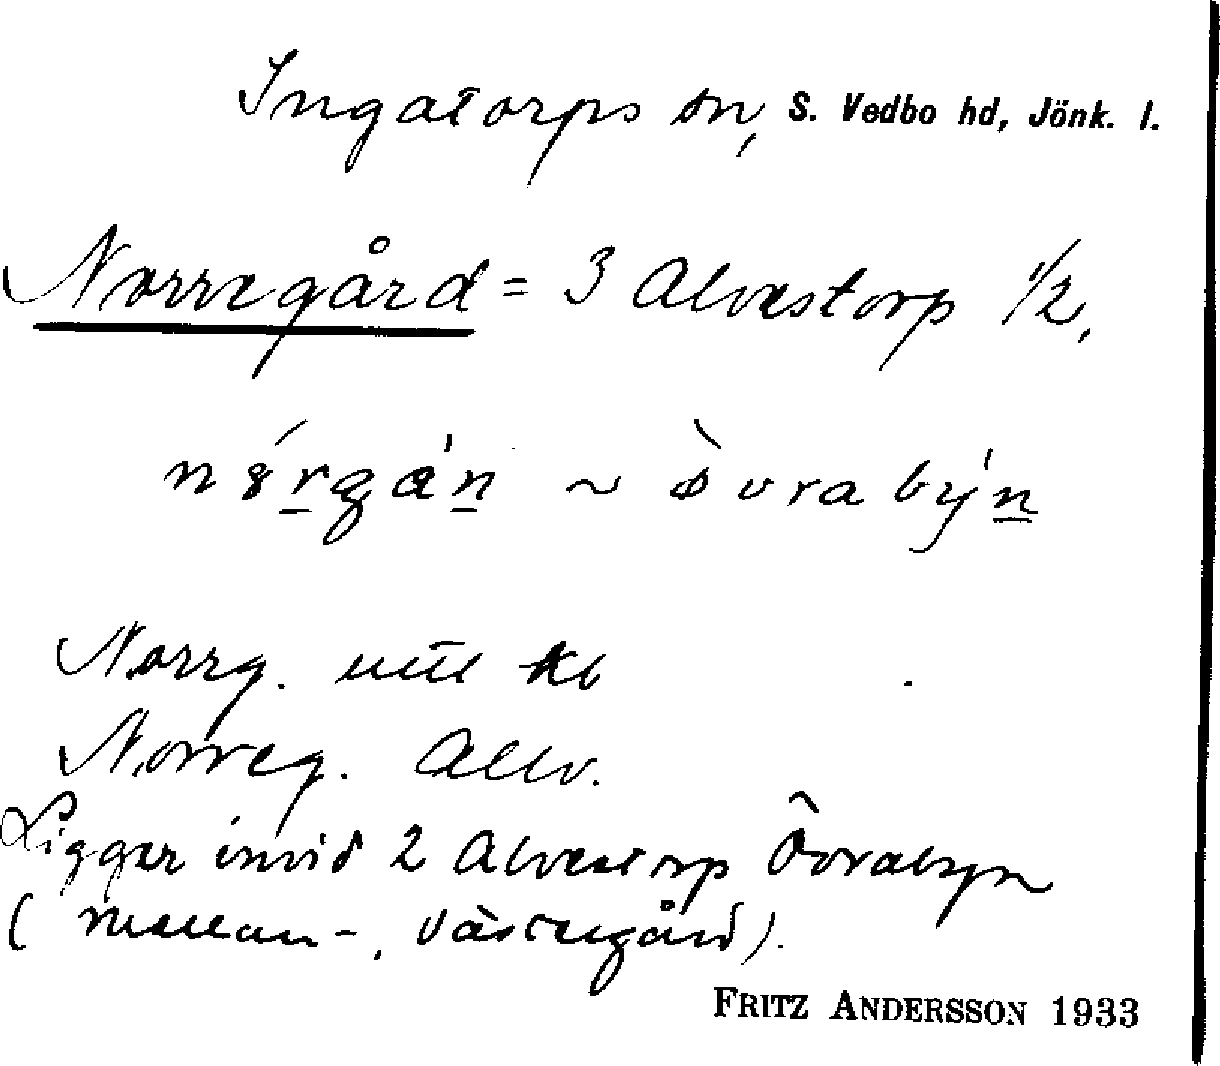 Ingatorps sn, S. Vedbo hd, Jönk. l.
Norregård = 3 Alvestorp 1/2,
~
Norrg.
Norreg. Allv.
Ligger invid 2 Alvestorp Övrabyn
(mellan-, västregård).
FRITZ ANDERSSON 1933